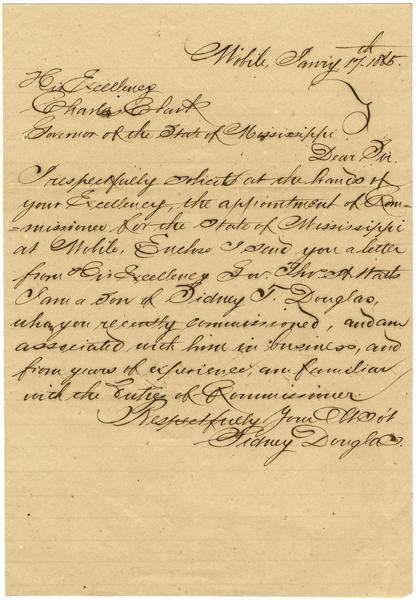 Mobile, Janry 17th 1865.
His Excellency
Charles Clark
Governor of the State of Mississippi
Dear Sir.
I respectfully solicit at the hands of
your Excellency, the appointment of Com-
=missioner for the State of Mississippi
at Mobile. Enclose I send you a letter
from His Excellency Gov. Tho. H Watts
I am a Son of Sidney T. Douglas,
who, you recently commissioned, and am
associated with him in business, and
from years of experience, am familiar
with the Duties of Commissioner.
Respectfully Your Obt Svt
Sidney Douglas.